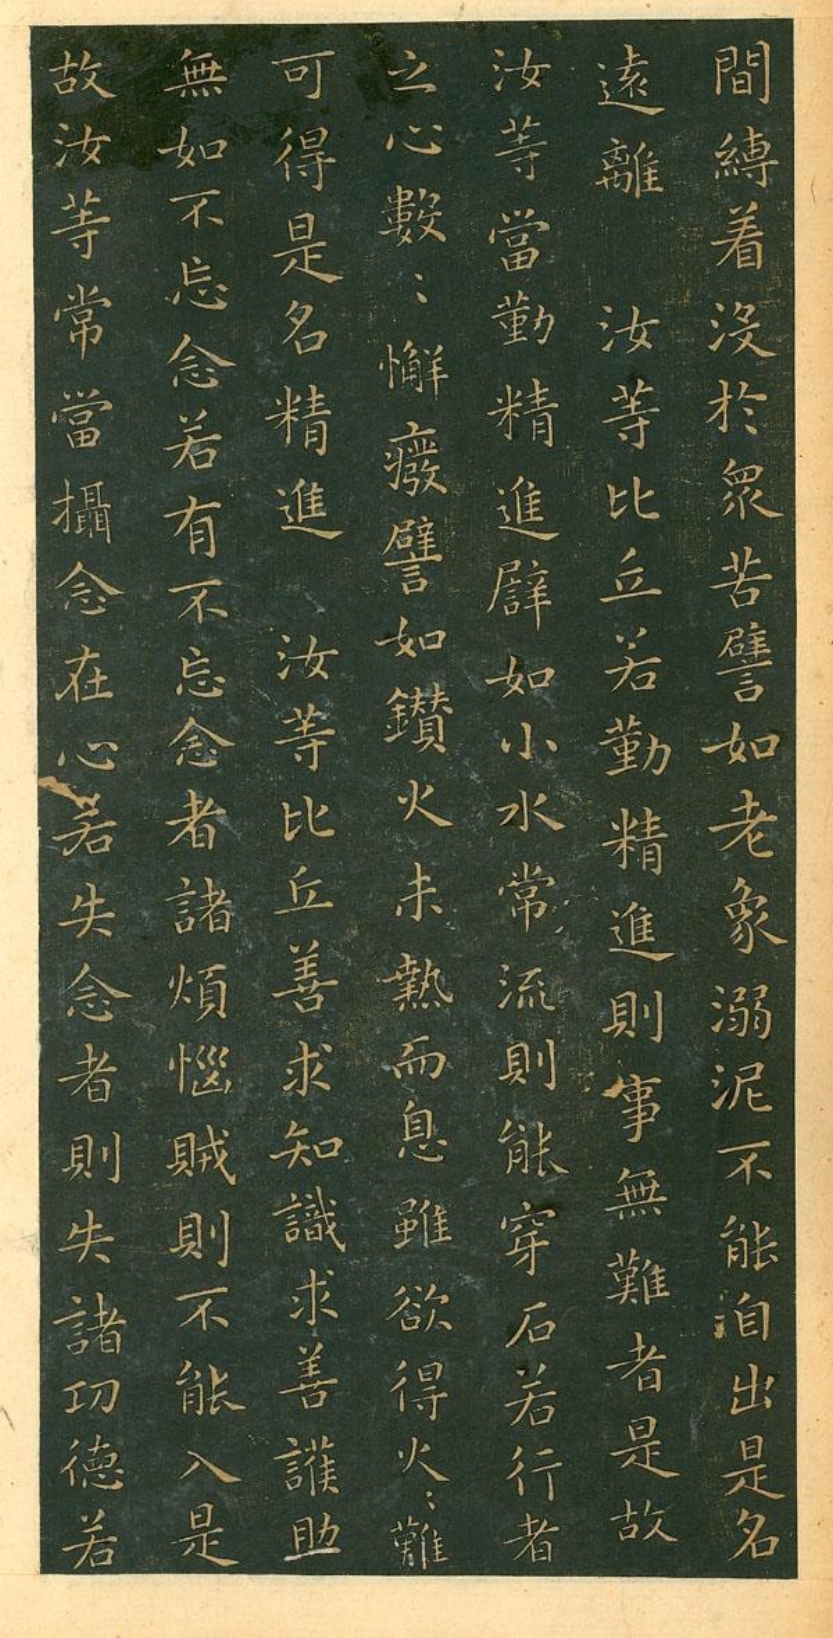 間縛着沒於衆苦譬如老象溺泥不能自出是名
遠離　汝等比丘若勤精進則事無難者是故
汝等當勤精進辟如小水常流則能穿石若行者
之心數〻懈癈譬如鑚火未熱而息雖欲得火〻難
可得是名精進　汝等比丘善求知識求善護助
無如不忘念若有不忘念者諸煩惱賊則不能入是
故汝等常當攝念在心若失念者則失諸功德若